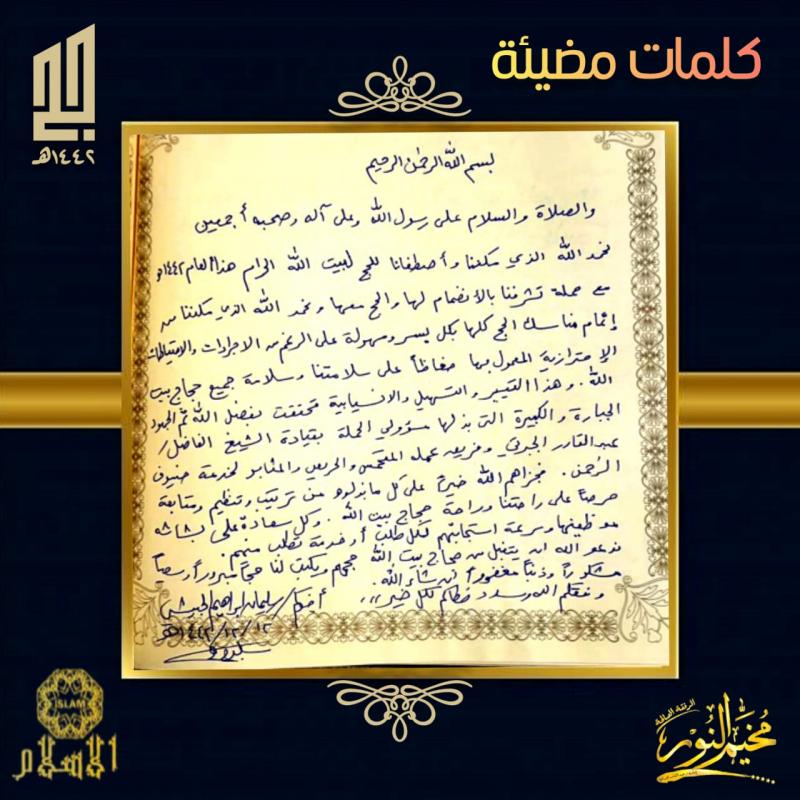 كلمات مضيئة
الحج
١٤٤٢هـ
بسم الله الرحمن الرحيم
والصلاة والسلام على رسول الله وعلى آله وصحبه أجمعين
نحمد الله الذي مكننا وأصطفانا للحج لبيت الله الحرام هذا العام ١٤٤٢هـ
مع حملة تشرفنا بالأنضمام لها والحج معها ونحمد الله الذي مكننا من
إتمام مناسك الحج كلها بكل يسر وسهولة على الرغم من الاجراءات والاحتياطات
الإحترازية المعمول بها حفاظاً على سلامتنا وسلامة جميع حجاج بيت
الله. وهذا التيسير والتسهيل والانسيابية تحققت بفضل الله ثم الجهود
الجبارة والكبيرة التي بذلها مسؤولي الحملة بقيادة الشيخ الفاضل/
عبدالقادر الجبرتي وفريق عمله المتحمس والحريص والمثابر لخدمة ضيوف
الرحمن. فجزاهم الله خيراً على كل ما بذلوه من ترتيب وتنظيم ومتابعة
حرصاً على راحتنا وراحة حجاج بيت الله. وكل سعادة على بشاشة
موظفيها وسرعة استجابتهم لكل طلب أو خدمة تطلب منهم.
ندعو الله ان يتقبل من حجاج بيت الله حجهم ويكتب لنا حجاً مبروراً وسعياً
مشكوراً وذنباً مغفوراً ان شاء الله.
وفقكم الله وسدد خطاكم لكل خير,,,
أخوكم/ سليمان ابراهيم الحبشي
١٤٤٢/١٢/١٢هـ
ISLAM
الاسلام
مخيم النور